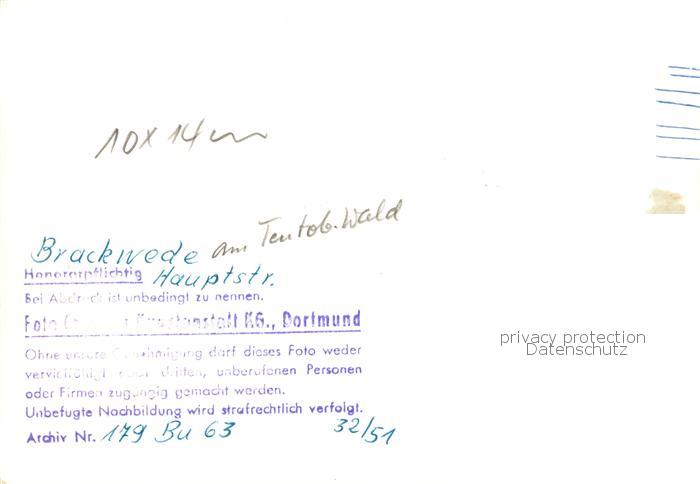 10 x 14 cm
Brackwede am Teutob. Wald
Hauptstr.
Honorarpflichtig
Bei Abdruck ist unbedingt zu nennen.
Foto Kunstanstalt KG., Dortmund
Ohne unsere Genehmigung darf dieses Foto weder
vervielfältigt oder dritten, unberufenen Personen
oder Firmen zugängig gemacht werden.
Unbefugte Nachbildung wird strafrechtlich verfolgt.
Archiv Nr. 179 Bu 63 32/51
privacy protection
Datenschutz